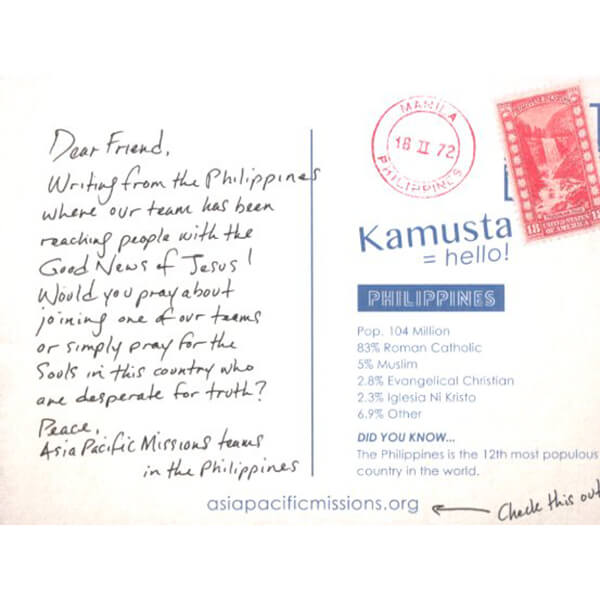 Dear Friend,
Writing from the Philippines
where our team has been
reaching people with the
Good News of Jesus!
Would you pray about
joining one of our teams
or simply pray for the
Souls in this country who
are desperate for truth?
Peace,
Asia Pacific Missions teams
in the Philippines
MANILA
18 II 72
PHILIPPINES
18 UNITED STATES OF AMERICA 18
Kamusta
= hello!
PHILIPPINES
Pop. 104 Million
83% Roman Catholic
5% Muslim
2.8% Evangelical Christian
2.3% Iglesia Ni Kristo
6.9% Other
DID YOU KNOW...
The Philippines is the 12th most populous
country in the world.
asiapacificmissions.org
Check this out